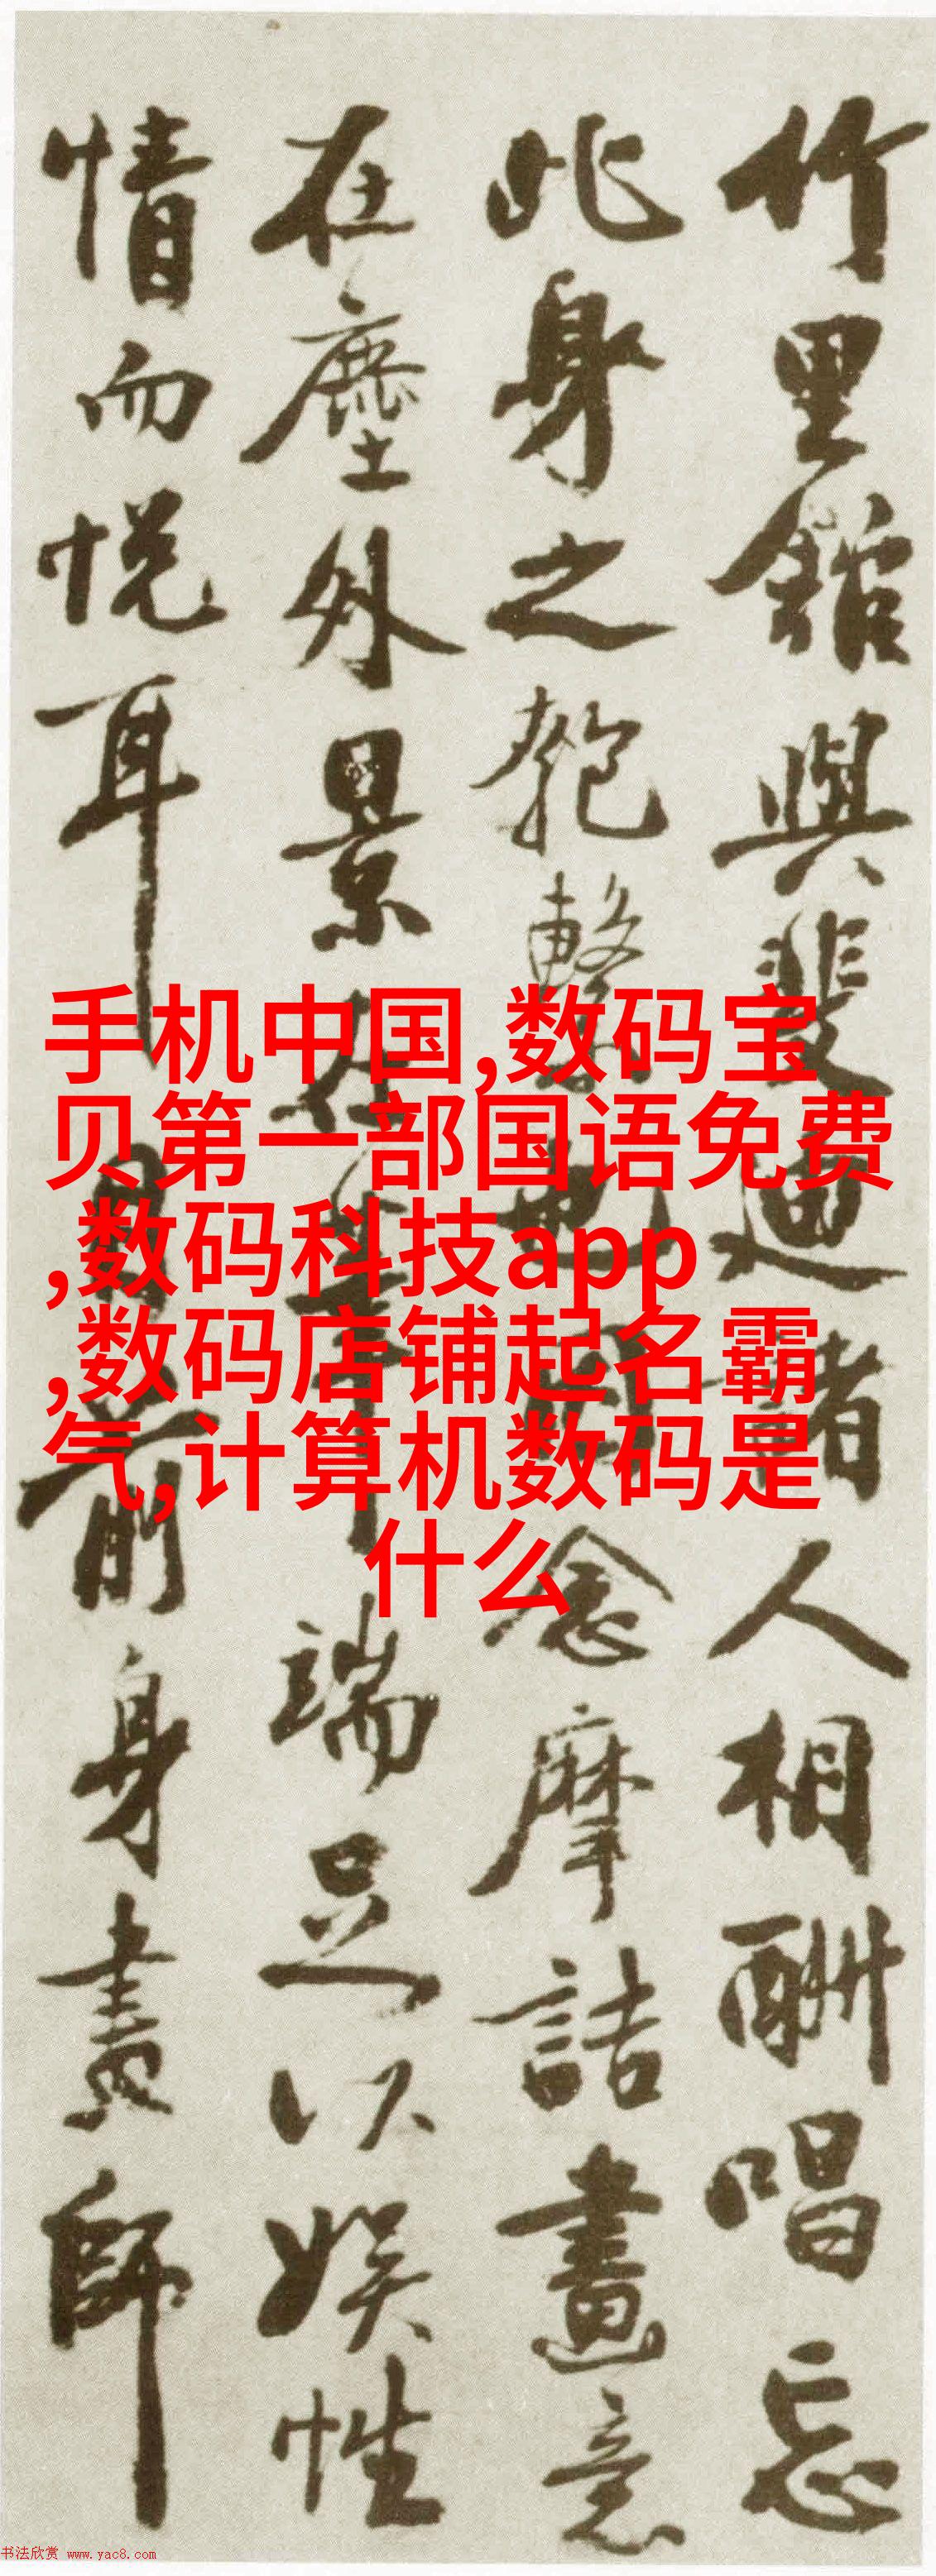 竹里館與裴迪諸人相酬唱忘
此身之匏繫也念摩詰畫意
在塵外景在筆端足以娛性
情而悅耳目前身畫師
手机中国,数码宝
贝第一部国语免费
,数码科技app
,数码店铺起名霸
气,计算机数码是
什么
书法欣赏 www.yac8.com